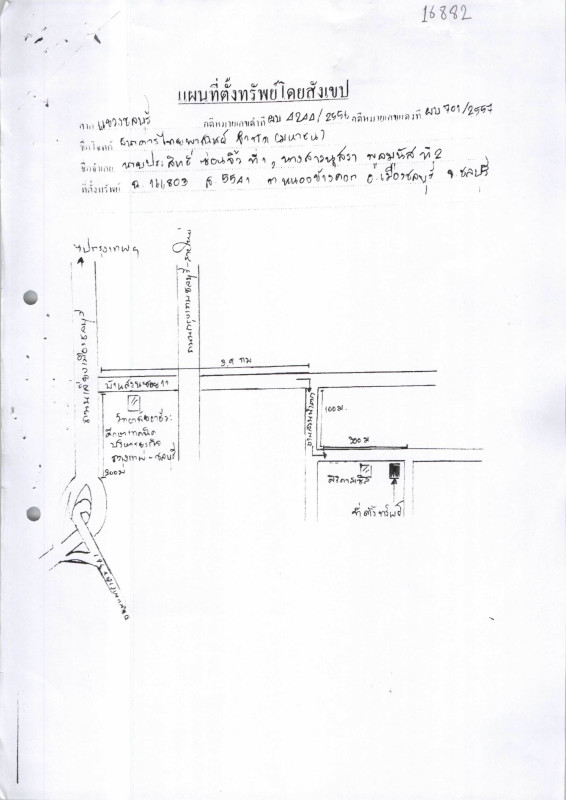 16882
แผนที่ตั้งทรัพย์โดยสังเขป
ศาล แขวงชลบุรี คดีหมายเลขดำที่ ผบ 4244/2556 คดีหมายเลขแดงที่ ผบ 701/2557
ชื่อโจทก์ ธนาคารไทยพาณิชย์ จำกัด (มหาชน)
ชื่อจำเลย นายประสิทธิ์ ซ่อนจิ๋ว ที่ 1, นางสาวนุสรา พูลมนัส ที่ 2
ที่ตั้งทรัพย์ ฉ. 161803 ต. หนองข้างคอก อ. เมืองชลบุรี จ. ชลบุรี
ไปกรุงเทพฯ
ถนนเลี่ยงเมืองชลบุรี
3,9 กม
บ้านสวนซอย 11
100 ม.
วิทยาลัยอาชีวะ
ศึกษาเทคนิค
บริหารธุรกิจ
กรุงเทพ-ชลบุรี
300 ม
900 ม
ที่ตั้งทรัพย์